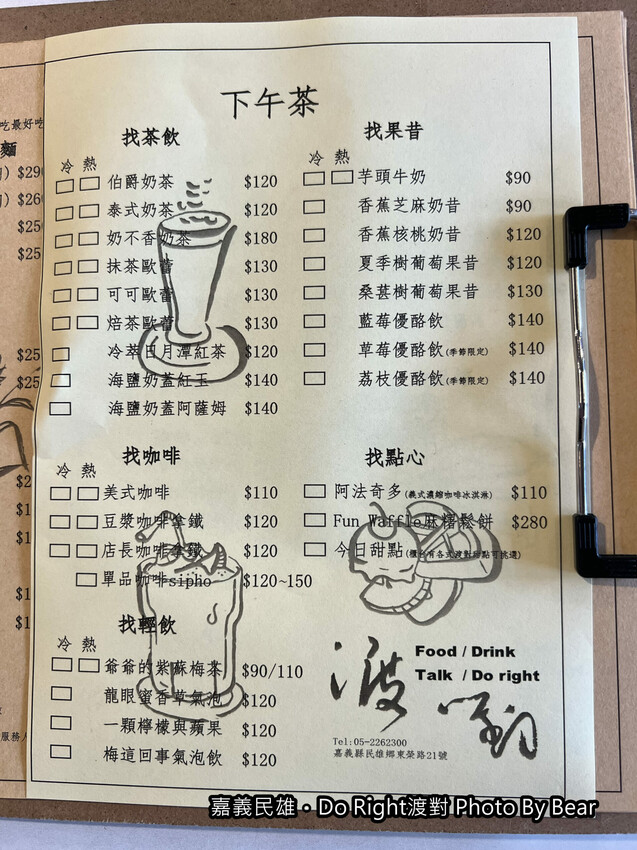 吃最好吃
麵
$25
$25
$25
下午茶
找茶飲
冷 熱
伯爵奶茶 $120
泰式奶茶 $120
奶不香奶茶 $180
抹茶歐蕾 $130
可可歐蕾 $130
焙茶歐蕾 $130
冷萃日月潭紅茶 $120
海鹽奶蓋紅玉 $140
海鹽奶蓋阿薩姆 $140
找咖啡
冷 熱
美式咖啡 $110
豆漿咖啡拿鐵 $120
店長咖啡拿鐵 $120
單品咖啡sipho $120~150
找輕飲
冷 熱
爺爺的紫蘇梅茶 $90/110
龍眼蜜香草氣泡 $120
一顆檸檬與蘋果 $120
梅這回事氣泡飲 $120
找果昔
冷 熱
芋頭牛奶 $90
香蕉芝麻奶昔 $90
香蕉核桃奶昔 $120
夏季樹葡萄果昔 $120
桑葚樹葡萄果昔 $130
藍莓優酪飲 $140
草莓優酪飲(季節限定) $140
荔枝優酪飲(季節限定) $140
找點心
阿法奇多(義式濃縮咖啡冰淇淋) $110
Fun Waffle麻糬鬆餅 $280
今日甜點(櫃台有各式渡對甜點可挑選)
渡對
Food / Drink
Talk / Do right
Tel:05-2262300
嘉義縣民雄鄉東榮路21號
服務人
嘉義民雄・Do Right渡對 Photo By Bear